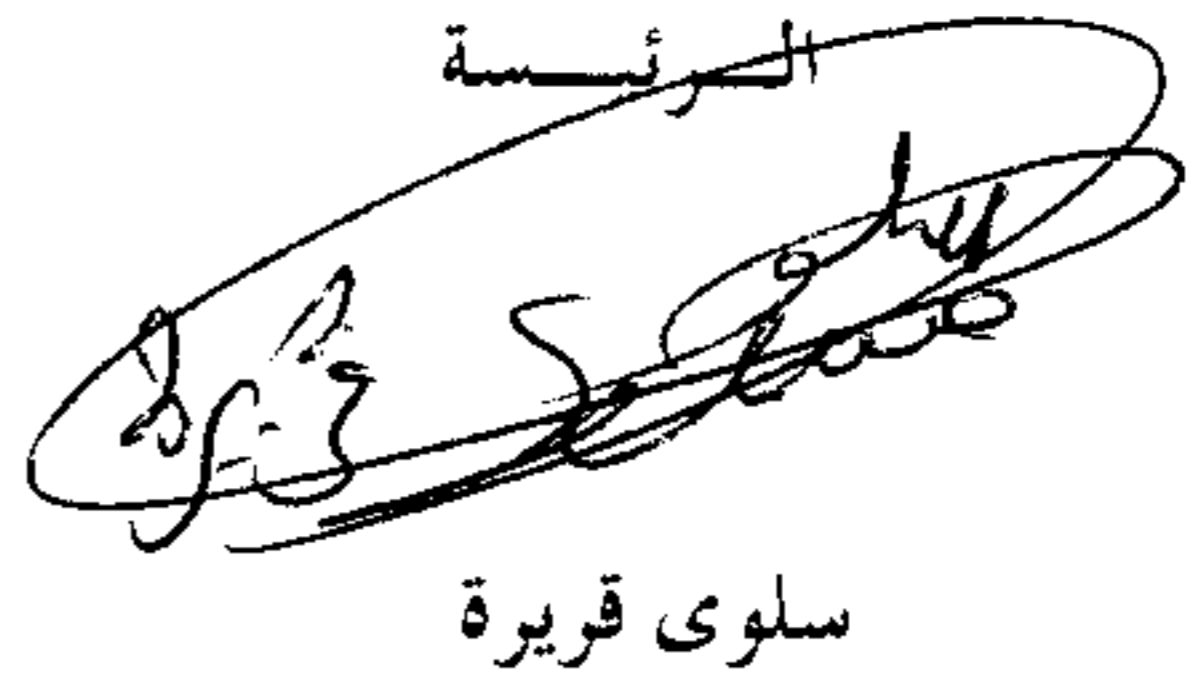 الرئسة
سلوى قريرة